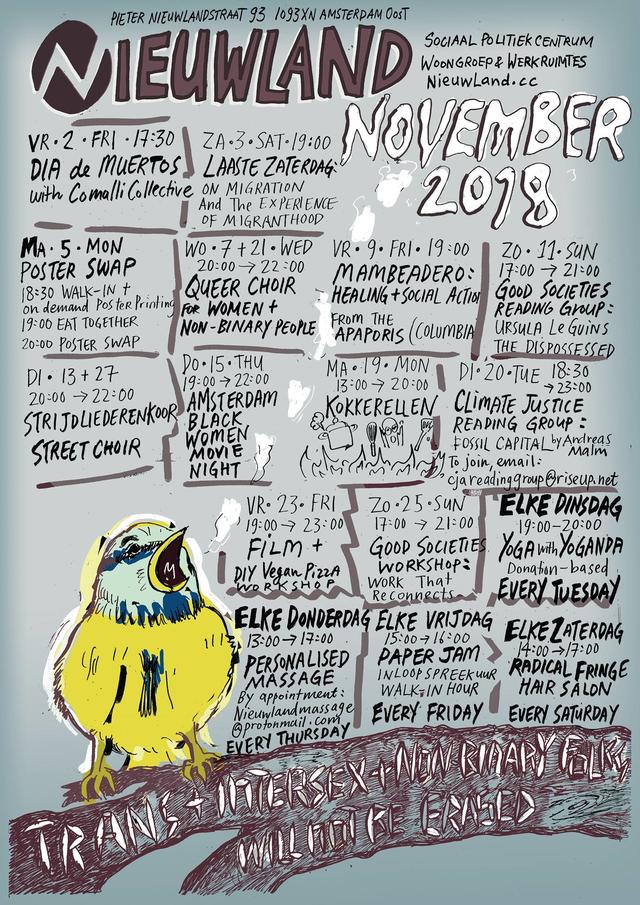 PIETER NIEUWLANDSTRAAT 93 1093XN AMSTERDAM OOST
NIEUWLAND
SOCIAAL POLITIEK CENTRUM
WOONGROEP & WERKRUIMTES
NIEUWLAND.CC
NOVEMBER
2018
VR • 2 • FRI • 17:30
DIA de MUERTOS
with Comalli Collective
ZA • 3 • SAT • 19:00
LAASTE ZATERDAG:
ON MIGRATION
And The EXPERIENCE
OF MIGRANTHOOD
MA • 5 • MON
POSTER SWAP
18:30 WALK-IN +
on demand Poster Printing
19:00 EAT TOGETHER
20:00 POSTER SWAP
WO • 7 + 21 • WED
20:00 → 22:00
QUEER CHOIR
FOR WOMEN +
NON-BINARY PEOPLE
VR • 9 • FRI • 19:00
MAMBEADERO:
HEALING + SOCIAL ACTION
FROM THE
APAPORIS (COLUMBIA
ZO • 11 • SUN
17:00 → 21:00
GOOD SOCIETIES
READING GROUP:
URSULA LE GUINS
THE DISPOSSESSED
DI • 13 + 27
20:00 → 22:00
STRIJDLIEDERENKOOR
STREET CHOIR
DO • 15 • THU
19:00 → 22:00
AMSTERDAM
BLACK
WOMEN
MOVIE
NIGHT
MA • 19 • MON
13:00 → 20:00
KOKKERELLEN
DI • 20 • TUE 18:30
→ 23:00
CLIMATE JUSTICE
READING GROUP:
FOSSIL CAPITAL by Andreas
Malm
To join, email:
cjareadinggroup@riseup.net
VR • 23 • FRI
19:00 → 23:00
FILM +
DIY Vegan Pizza
WORKSHOP
ZO • 25 • SUN
17:00 → 21:00
GOOD SOCIETIES
WORKSHOP:
WORK That
Reconnects
ELKE DINSDAG
19:00-20:00
YOGA with YOGANDA
Donation-based
EVERY TUESDAY
ELKE DONDERDAG
13:00 → 17:00
PERSONALISED
MASSAGE
By appointment:
Nieuwlandmassage
@protonmail.com
EVERY THURSDAY
ELKE VRIJDAG
15:00 → 16:00
PAPER JAM
INLOOPSPREEKUUR
WALK-IN HOUR
EVERY FRIDAY
ELKE ZATERDAG
14:00 → 17:00
RADICAL FRINGE
HAIR SALON
EVERY SATURDAY
TRANS + INTERSEX + NON BINARY FOLKS
WILL NOT BE ERASED